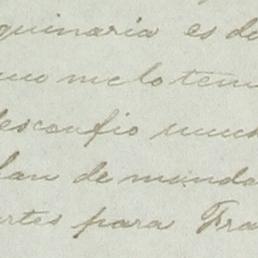 quinaria es de
uno me lo tem
desconfio mus
lan de manda
artes para Fra